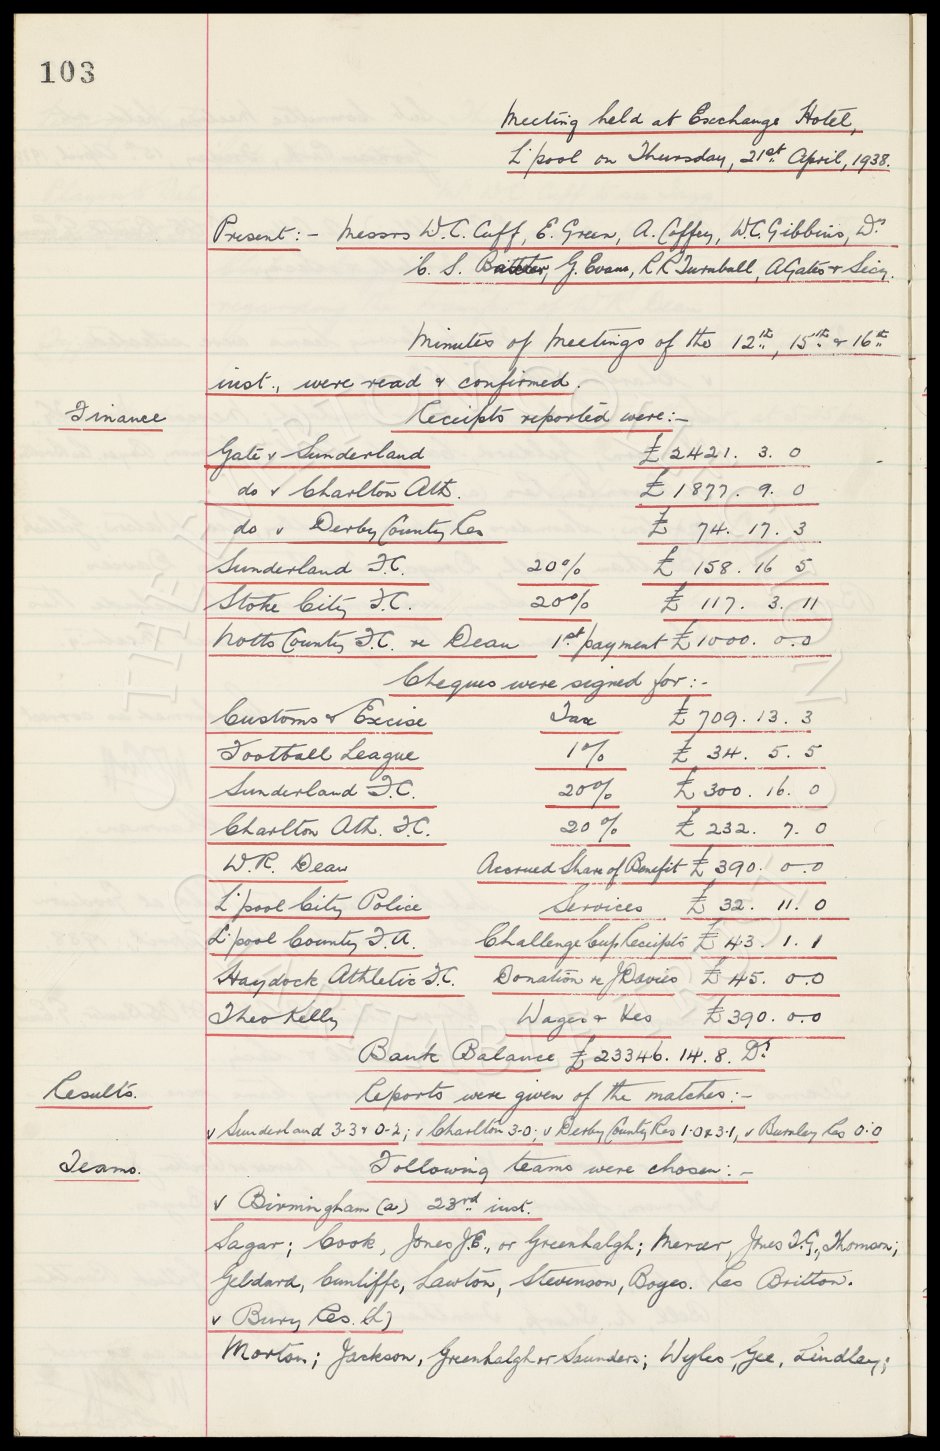 103
Meeting held at Exchange Hotel,
L'pool on Thursday, 21st April, 1938.
Present:- Messrs W.C. Cuff, E. Green, A. Coffey, W.C. Gibbins, Dr
C. S. Baxter, G. Evans, R.R. Turnbull, A Gates & Secy.
Minutes of Meetings of the 12th, 15th & 16th
inst., were read & confirmed.
Finance
Receipts reported were:-
Gate v Sunderland £2421. 3. 0
do v Charlton Ath. £1877. 9. 0
do v Derby County Res £ 74. 17. 3
Sunderland F.C. 20% £ 158. 16 5
Stoke City F.C. 20% £ 117. 3. 11
Notts County F.C. re Dean 1st payment £1000. 0.0
Cheques were signed for:-
Customs & Excise Tax £709. 13. 3
Football League 1% £ 34. 5. 5
Sunderland F.C. 20% £300. 16. 0
Charlton Ath. F.C. 20% £232. 7. 0
W.R. Dean Accrued Share of Benefit £390. 0.0
L'pool City Police Services £32. 11. 0
L'pool County F.A. Challenge Cup Receipts £43. 1. 1
Haydock Athletic F.C. Donation re J Davies £45. 0.0
Theo Kelly Wages & Xes £390. 0.0
Bank Balance £23346. 14. 8. Dr
Results.
Reports were given of the matches:-
v Sunderland 3.3 & 0-2; v Charlton 3-0; v Derby County Res 1-0 & 3-1, v Burnley Res 0:0
Teams.
Following teams were chosen:-
v Birmingham (a) 23rd inst.
Sagar; Cook, Jones J.E., or Greenhalgh; Mercer, Jones T.G., Thomson;
Geldard, Cunliffe, Lawton, Stevenson, Boyes. Res Britton.
v Bury Res. (h)
Morton; Jackson, Greenhalgh or Saunders; Wyles, Gee, Lindley;